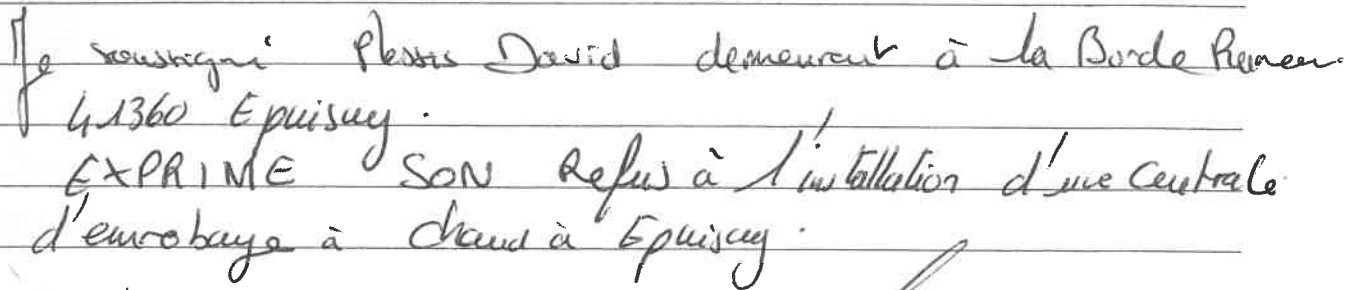 Je soussigné Plessis David demeurant à la Borde
41360 Epuisay.
EXPRIME SON Refus à l'installation d'une Centrale
d'enrobage à chaud à Epuisay.